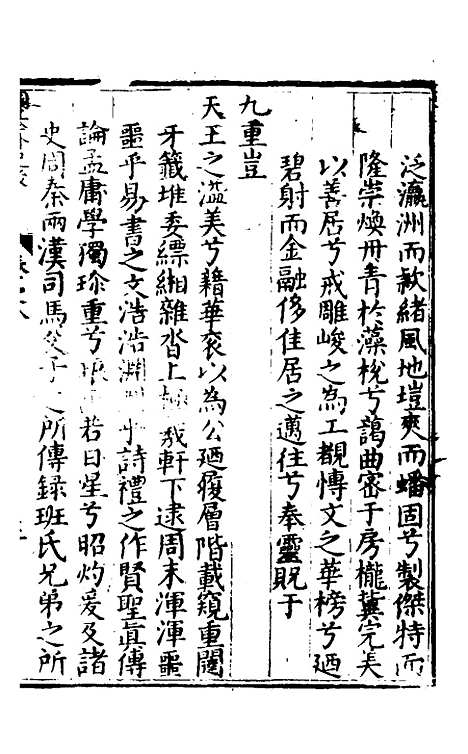 泛瀛洲而欸緒風地塏爽而蟠固兮製傑特而
隆崇煥丹青於藻梲兮藹曲密于房櫳冀完美
以善居兮戒雕峻之為工覩慱文之華榜兮廼
碧射而金融侈佳居之邁往兮奉靈貺于
九重豈
天王之溢美兮籍華衮以為公廼復層階載窺重闥
牙籤堆委縹緗雜沓上羲軒下逮周末渾渾噩
噩乎易書之文浩浩淵淵乎詩禮之作賢聖眞傳
論孟庸學獨珍重兮若日星兮昭灼爰及諸
史周秦兩漢司馬父子之所傳錄班氏兄弟之所